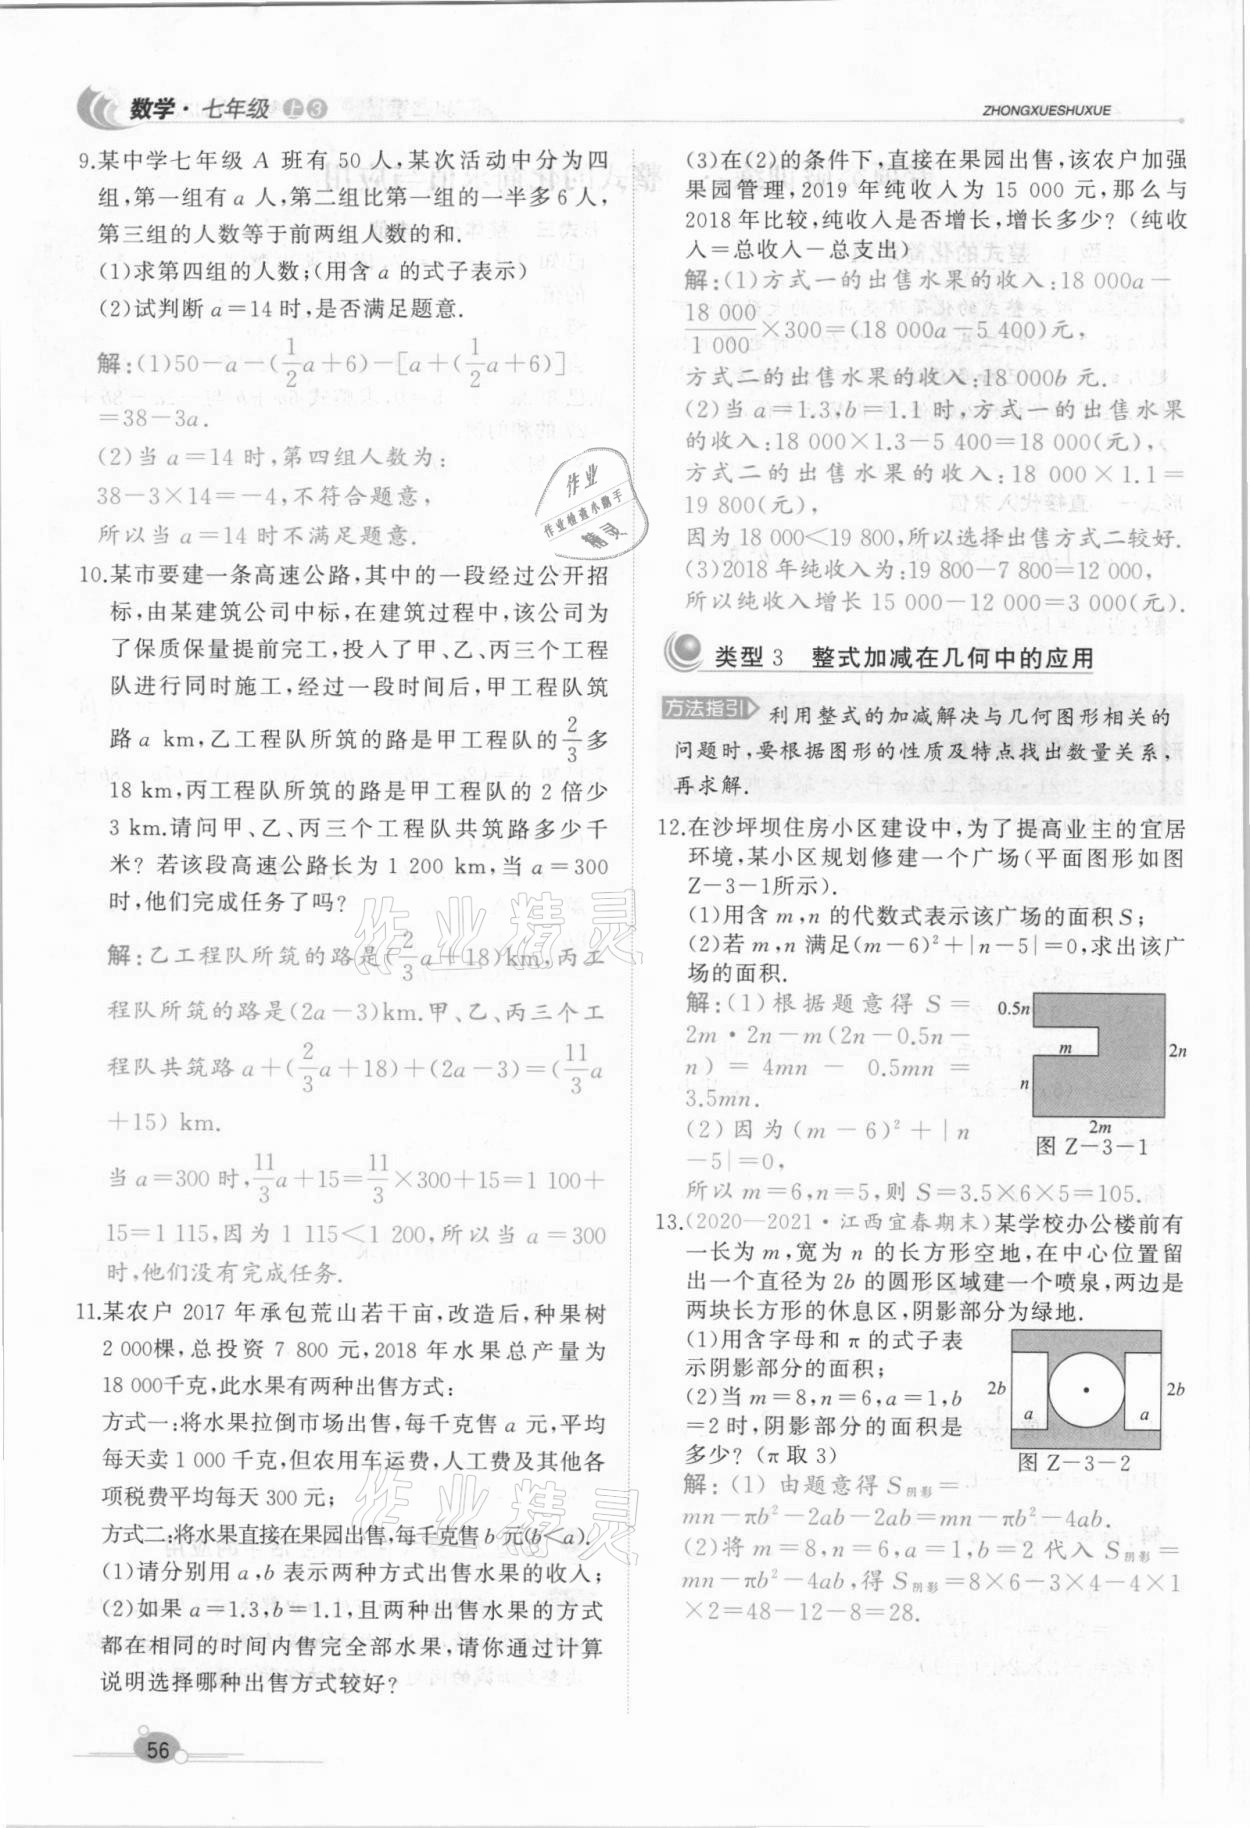 数学·七年级 上 3
ZHONGXUESHUXUE
9.某中学七年级 A 班有 50 人,某次活动中分为四
组,第一组有 a 人,第二组比第一组的一半多6人,
第三组的人数等于前两组人数的和.
(1)求第四组的人数;(用含 a 的式子表示)
(2)试判断 a=14 时,是否满足题意.
解:(1)50-a-(1/2a+6)-[a+(1/2a+6)]
=38-3a.
(2)当 a=14 时,第四组人数为:
38-3×14=-4,不符合题意,
所以当 a=14 时不满足题意.
10.某市要建一条高速公路,其中的一段经过公开招
标,由某建筑公司中标,在建筑过程中,该公司为
了保质保量提前完工,投入了甲、乙、丙三个工程
队进行同时施工,经过一段时间后,甲工程队筑
路 a km,乙工程队所筑的路是甲工程队的2/3多
18 km,丙工程队所筑的路是甲工程队的 2 倍少
3 km.请问甲、乙、丙三个工程队共筑路多少千
米? 若该段高速公路长为 1 200 km,当 a=300
时,他们完成任务了吗?
解:乙工程队所筑的路是(2/3a+18)km,丙工
程队所筑的路是(2a-3)km.甲、乙、丙三个工
程队共筑路 a+(2/3a+18)+(2a-3)=(11/3a
+15) km.
当 a=300 时,11/3a+15=11/3×300+15=1 100+
15=1 115,因为 1 115<1 200,所以当 a=300
时,他们没有完成任务.
11.某农户 2017 年承包荒山若干亩,改造后,种果树
2 000棵,总投资 7 800 元,2018 年水果总产量为
18 000千克,此水果有两种出售方式:
方式一:将水果拉倒市场出售,每千克售 a 元,平均
每天卖 1 000 千克,但农用车运费,人工费及其他各
项税费平均每天 300 元;
方式二:将水果直接在果园出售,每千克售 b 元(b<a).
(1)请分别用 a,b 表示两种方式出售水果的收入;
(2)如果 a=1.3,b=1.1,且两种出售水果的方式
都在相同的时间内售完全部水果,请你通过计算
说明选择哪种出售方式较好?
56
(3)在(2)的条件下,直接在果园出售,该农户加强
果园管理,2019 年纯收入为 15 000 元,那么与
2018 年比较,纯收入是否增长,增长多少? (纯收
入=总收入-总支出)
解:(1)方式一的出售水果的收入:18 000a-
18 000/1 000×300=(18 000a-5 400)元,
方式二的出售水果的收入:18 000b 元.
(2)当 a=1.3,b=1.1 时,方式一的出售水果
的收入:18 000×1.3-5 400=18 000(元),
方式二的出售水果的收入:18 000×1.1=
19 800(元),
因为 18 000<19 800,所以选择出售方式二较好.
(3)2018 年纯收入为:19 800-7 800=12 000,
所以纯收入增长 15 000-12 000=3 000(元).
类型 3 整式加减在几何中的应用
方法指引 利用整式的加减解决与几何图形相关的
问题时,要根据图形的性质及特点找出数量关系,
再求解.
12.在沙坪坝住房小区建设中,为了提高业主的宜居
环境,某小区规划修建一个广场(平面图形如图
Z-3-1所示).
(1)用含 m,n 的代数式表示该广场的面积 S;
(2)若 m,n 满足(m-6)²+|n-5|=0,求出该广
场的面积.
解:(1)根据题意得 S=
2m·2n-m(2n-0.5n-
n) = 4mn - 0.5mn=
3.5mn.
(2)因为(m-6)²+|n
-5|=0,
所以 m=6,n=5,则 S=3.5×6×5=105.
0.5n
m
2n
n
2m
图 Z-3-1
13.(2020—2021·江西宜春期末)某学校办公楼前有
一长为 m,宽为 n 的长方形空地,在中心位置留
出一个直径为 2b 的圆形区域建一个喷泉,两边是
两块长方形的休息区,阴影部分为绿地.
(1)用含字母和 π 的式子表
示阴影部分的面积;
(2)当 m=8,n=6,a=1,b
=2 时,阴影部分的面积是
多少? (π 取 3)
2b
2b
a
a
图 Z-3-2
解:(1) 由题意得 S阴影=
mn-πb²-2ab-2ab=mn-πb²-4ab.
(2)将 m=8,n=6,a=1,b=2 代入 S阴影=
mn-πb²-4ab,得 S阴影=8×6-3×4-4×1
×2=48-12-8=28.
作业
作业检查小助手
精灵
作业精灵
作业精灵